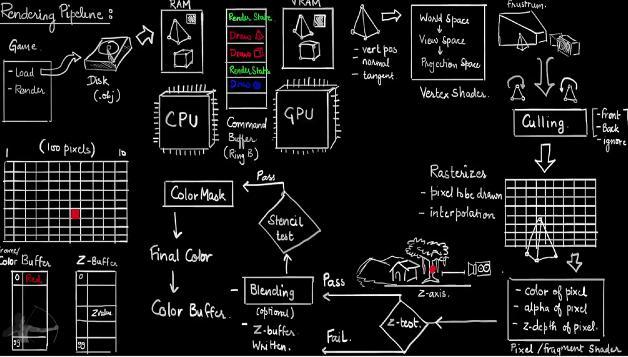 Rendering Pipeline:
Game
- Load
- Render
Disk
(.obj)
RAM
Render State
Draw
Draw
Render State
Draw
Command
Buffer
(Ring B)
CPU
VRAM
GPU
- vert pos
- normal
- tangent
World Space
View Space
Projection Space
Vertex Shader
frustrum.
Culling.
- Front
- Back
- ignore
Rasterizes
- pixel to be drawn
- interpolation
- color of pixel
- alpha of pixel
- z-depth of pixel.
Pixel/fragment Shader
Z-axis.
Z-test.
Pass
Fail.
Blending
(optional)
- Z-buffer
Written.
Stencil
test
Pass
Color Mask
Final Color
Color Buffer.
(100 pixels)
1
10
Color Buffer
0
Red
99
Z-Buffer
0
Z value
99